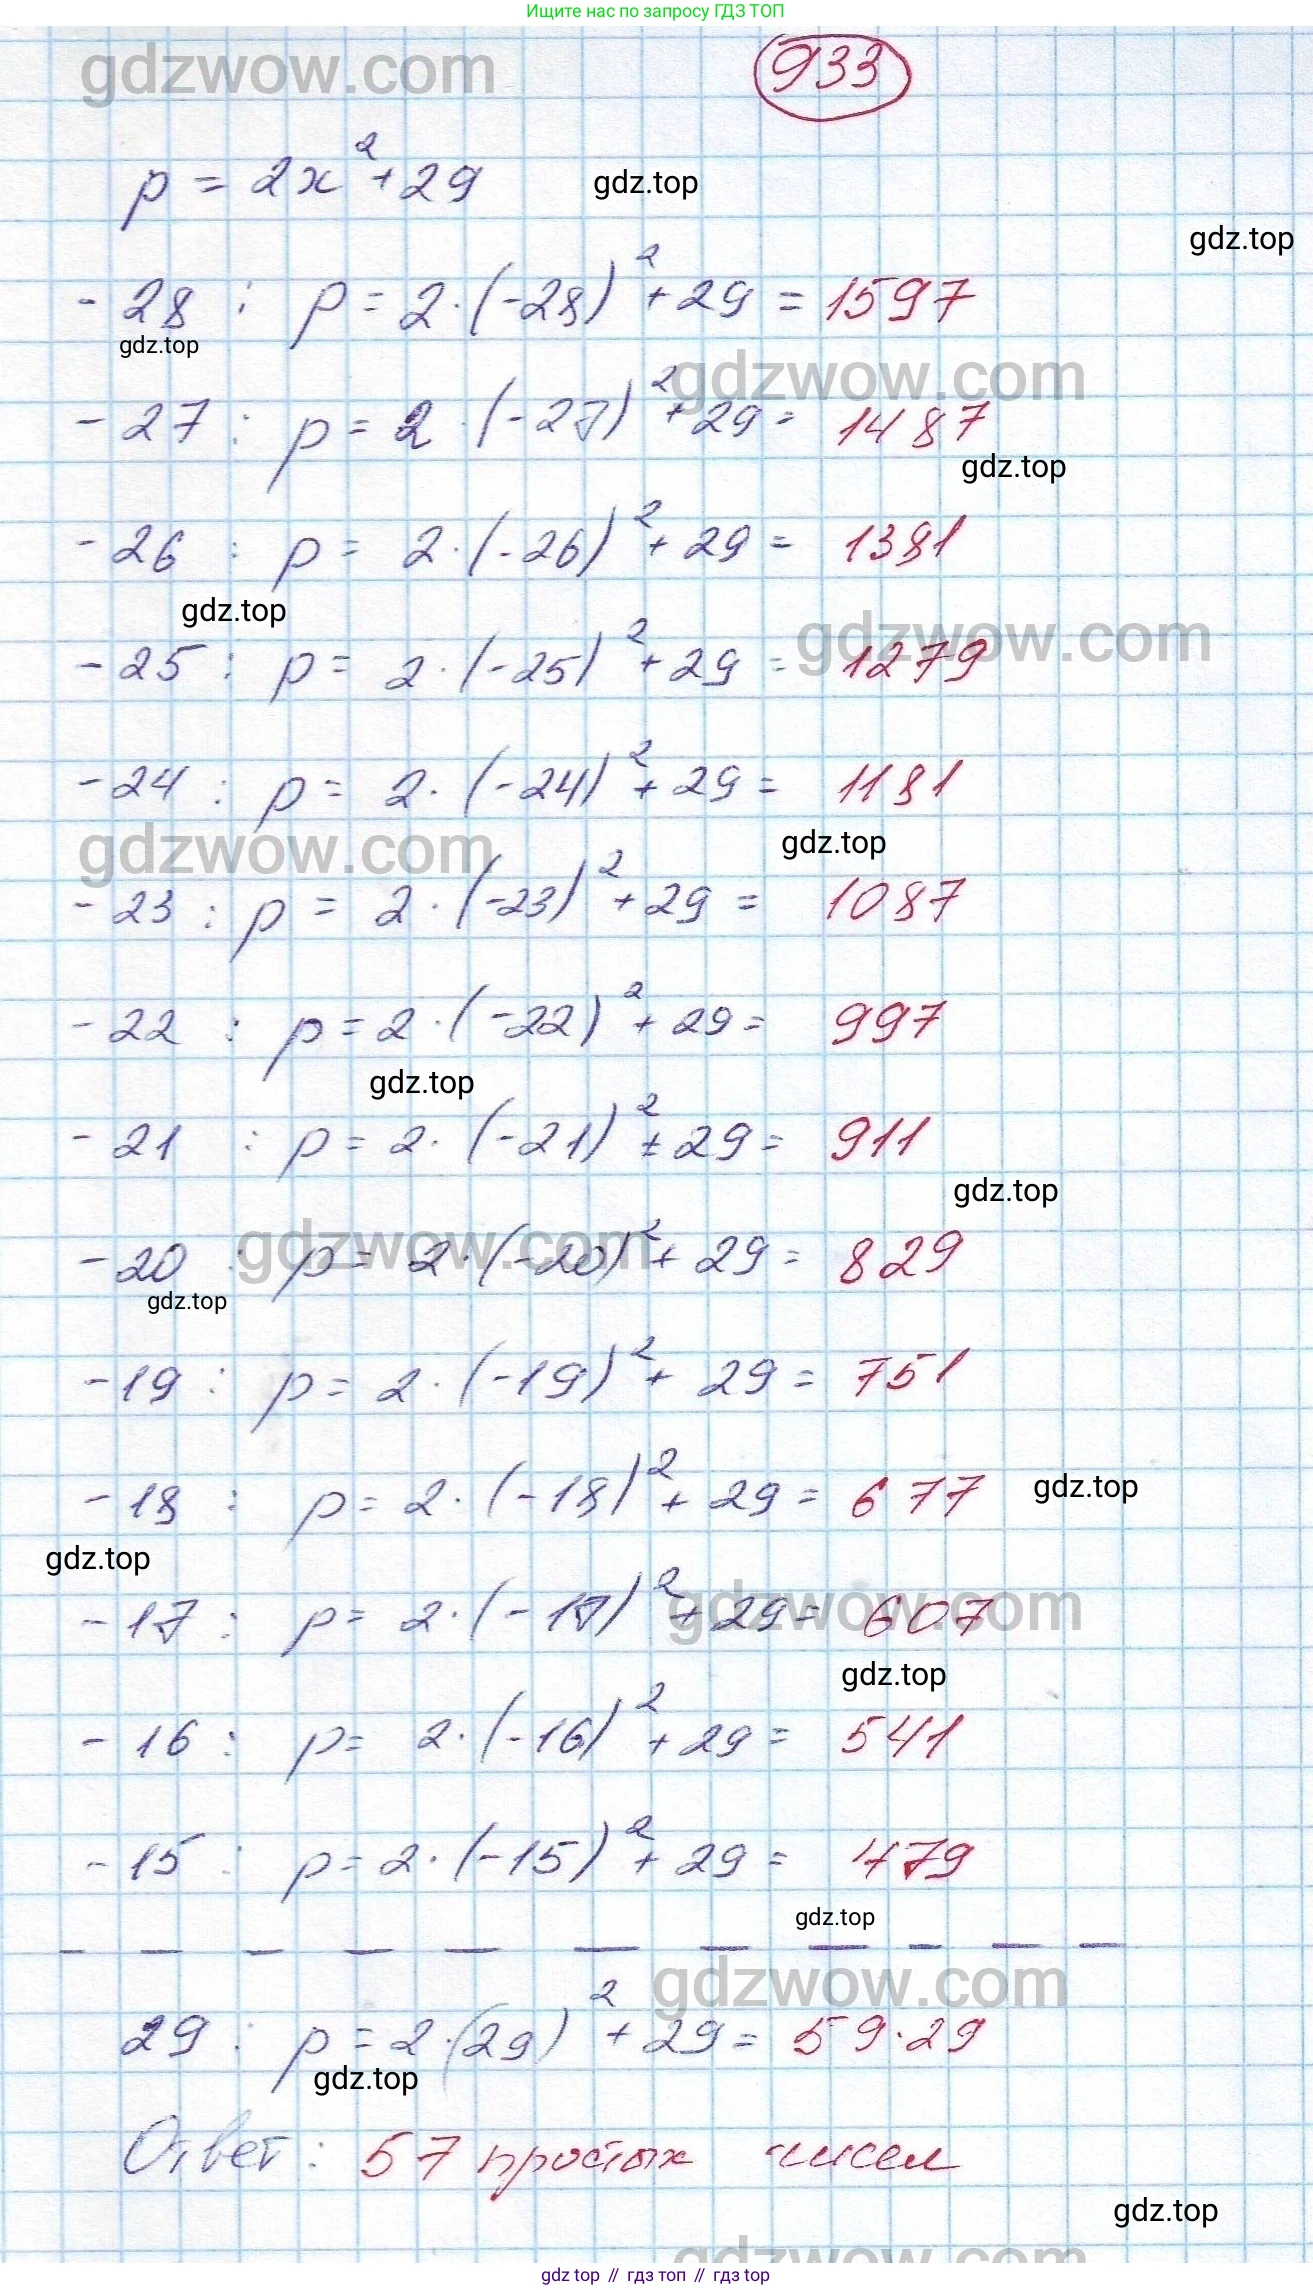 Ищите нас по запросу ГДЗ ТОП
gdzwow.com
933
p = 2x² + 29
gdz.top
gdz.top
- 28 : p = 2·(-28)² + 29 = 1597
gdz.top
gdzwow.com
- 27 : p = 2·(-27)² + 29 = 1487
gdz.top
- 26 : p = 2·(-26)² + 29 = 1381
gdz.top
gdzwow.com
- 25 : p = 2·(-25)² + 29 = 1279
- 24 : p = 2·(-24)² + 29 = 1181
gdz.top
gdzwow.com
- 23 : p = 2·(-23)² + 29 = 1087
- 22 : p = 2·(-22)² + 29 = 997
gdz.top
- 21 : p = 2·(-21)² ± 29 = 911
gdz.top
gdzwow.com
- 20 : p = 2·(-20)² + 29 = 829
gdz.top
- 19 : p = 2·(-19)² + 29 = 751
- 18 : p = 2·(-18)² + 29 = 677
gdz.top
gdz.top
gdzwow.com
- 17 : p = 2·(-17)² + 29 = 607
gdz.top
- 16 : p = 2·(-16)² + 29 = 541
- 15 : p = 2·(-15)² + 29 = 479
gdz.top
- - - - - - - - - - -
gdzwow.com
29 : p = 2·(29)² + 29 = 59·29
gdz.top
Ответ : 57 простых чисел
gdz.top
gdzwow.com
gdz.top // гдз топ // гдз top